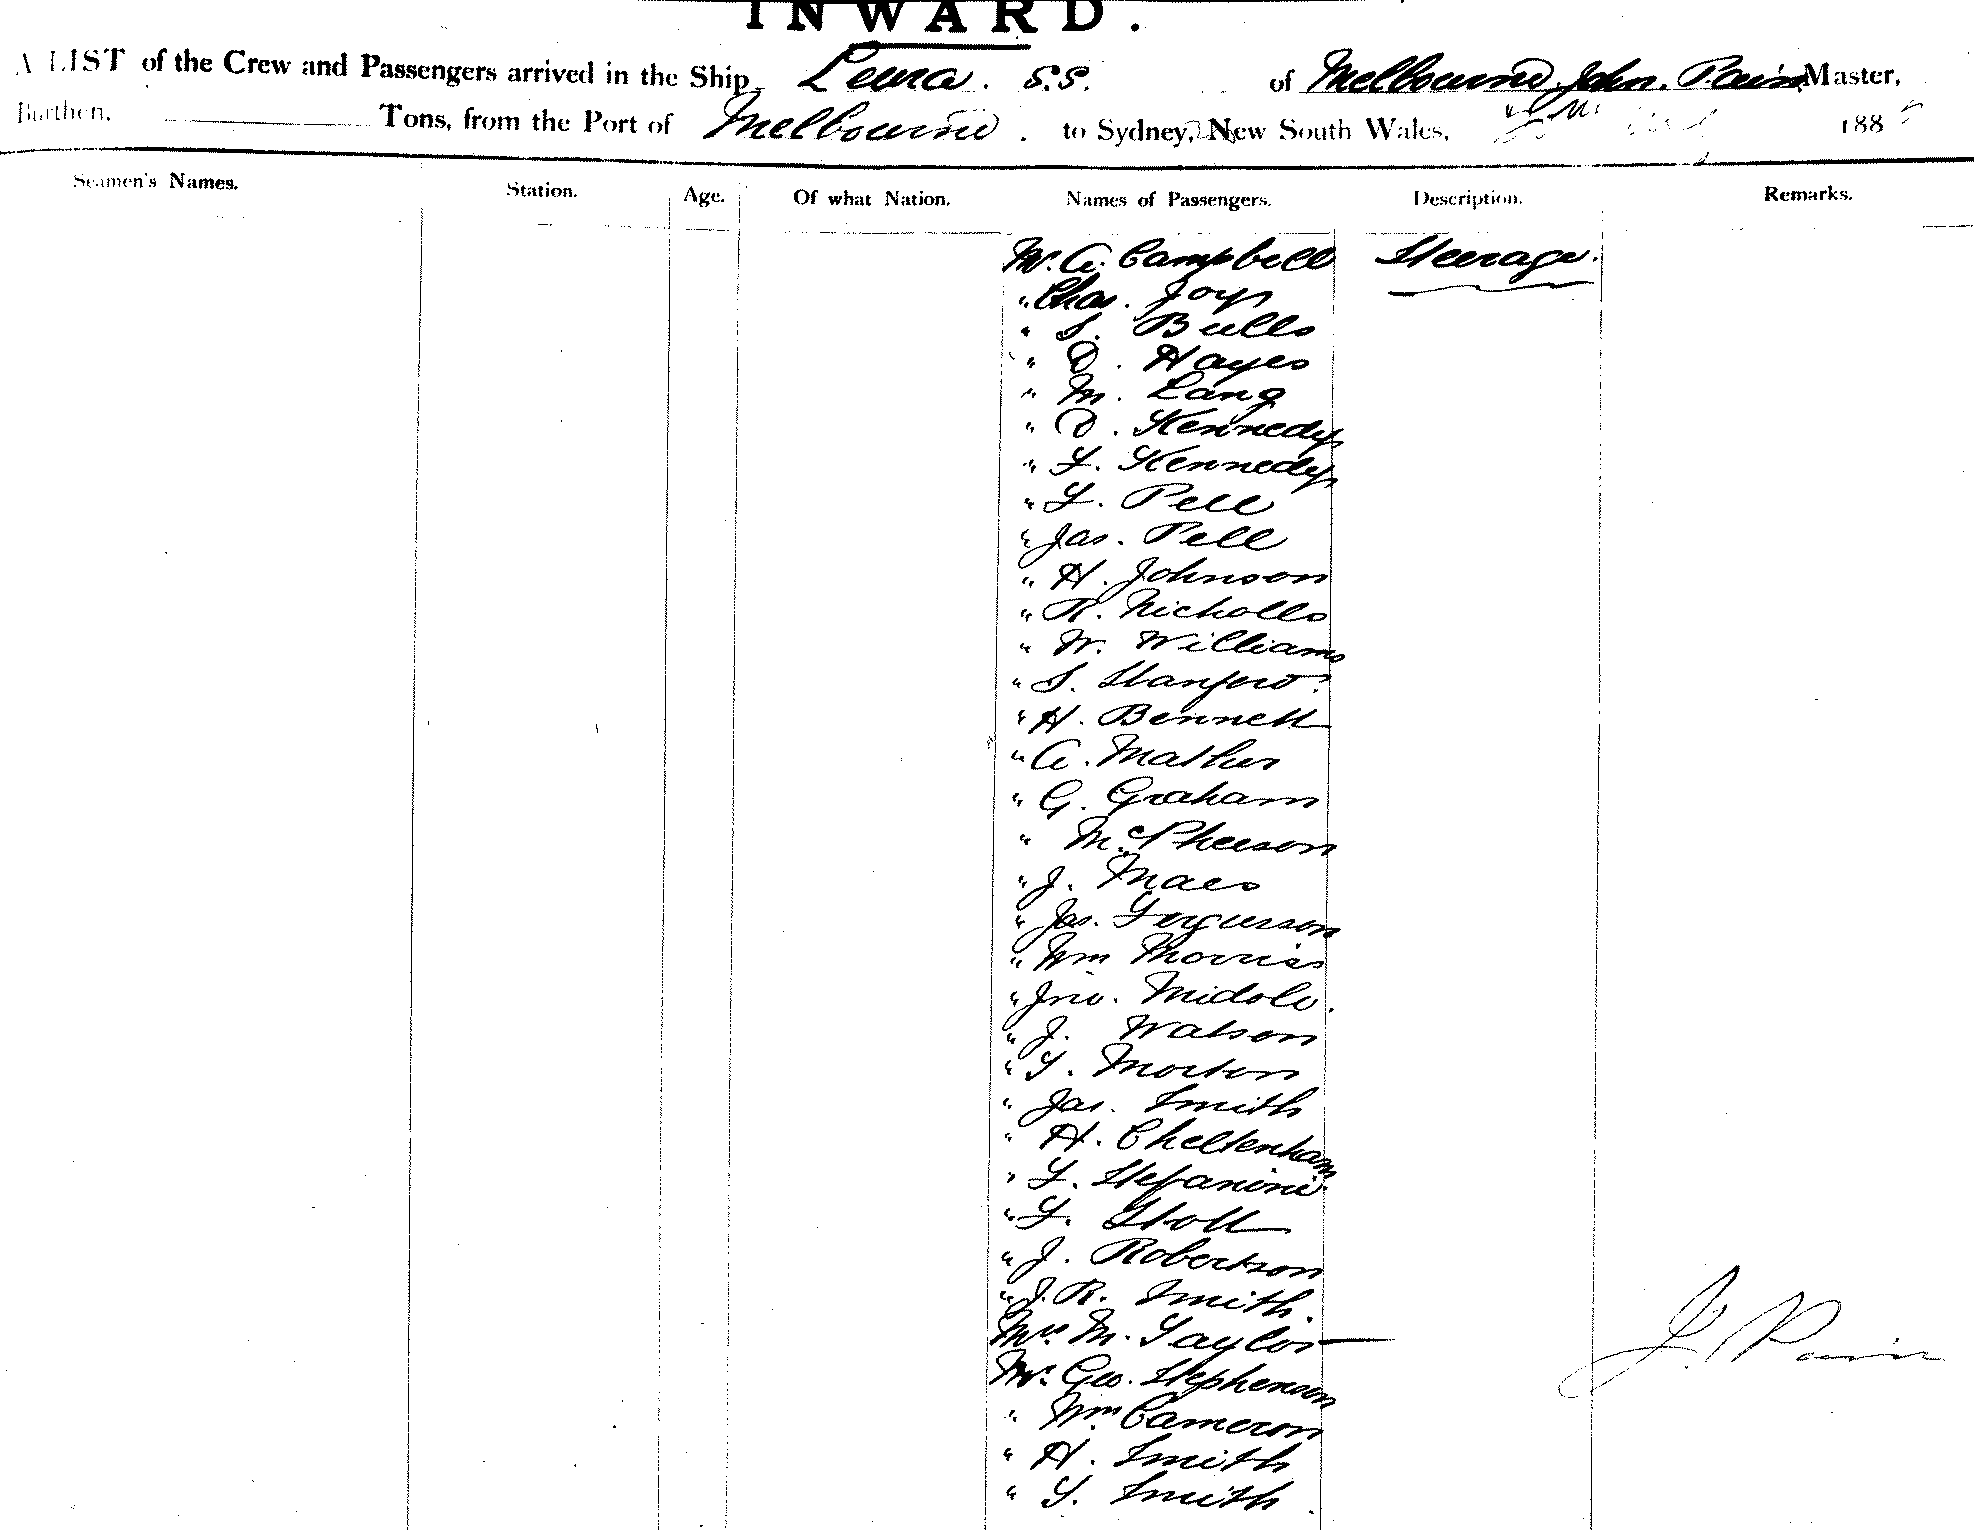 INWARD.
A LIST of the Crew and Passengers arrived in the Ship Leura. S.S. of Melbourne John. Pain Master,
Burthen, Tons, from the Port of Melbourne. to Sydney, New South Wales, 188
Seamen's Names. Station. Age. Of what Nation. Names of Passengers. Description. Remarks.
Mr. A. Campbell Steerage.
" Chas. Joy
" S. Bulls
" D. Hayes
" M. Lang
" D. Kennedy
" F. Kennedy
" F. Pell
" Jas. Pell
" H. Johnson
" R. Nicholls
" W. Williams
" S. Stanford
" H. Bennett
" A. Mather
" G. Graham
" McPherson
" J. Maes
" Jas. Fergusson
" Wm Morriss
" Jno. Midole.
" J. Watson
" T. Morton
" Jas. Smith
" H. Cheltenham
" F. Stefanini
" F. Stott
" J. Robertson
" J. R. Smith.
Mrs M. Taylor
Mr. Geo. Stephenson
" Wm Cameron
" H. Smith
" T. Smith
J. Pain